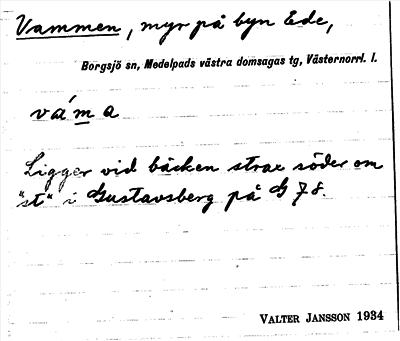 Vammen, myr på byn Ede,
Borgsjö sn, Medelpads västra domsagas tg, Västernorrl. l.
vám a
Ligger vid bäcken strax söder om
"st" i Gustavsberg på G 78.
VALTER JANSSON 1934